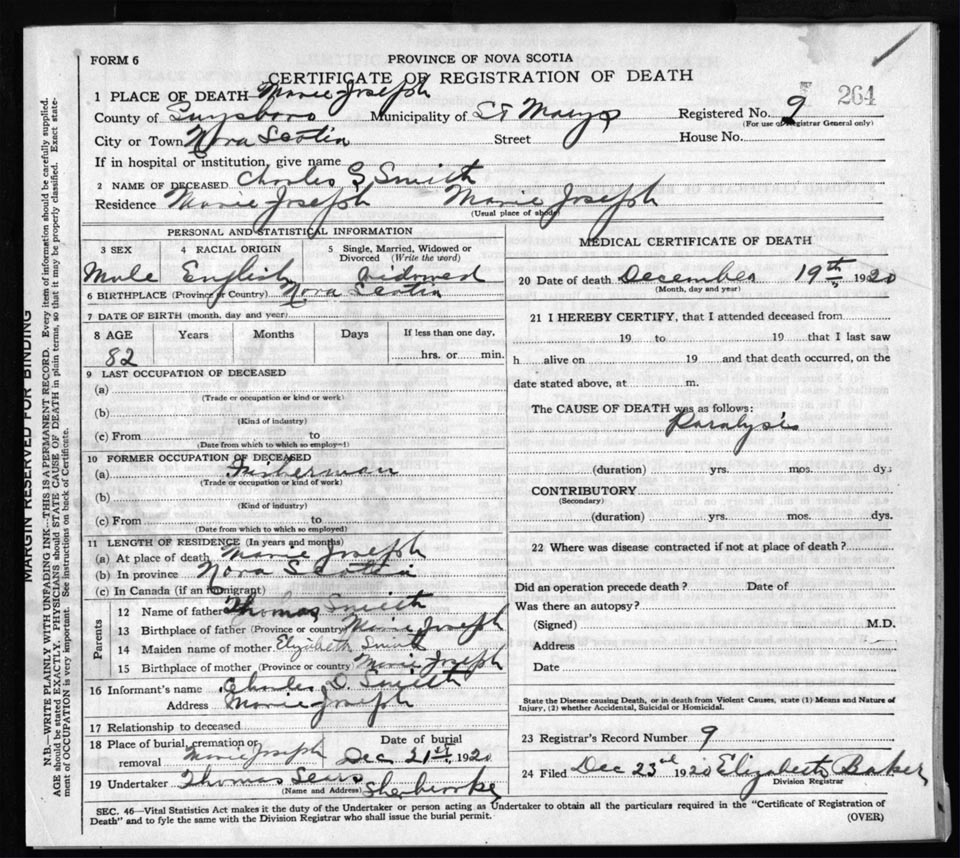 FORM 6
PROVINCE OF NOVA SCOTIA
CERTIFICATE OF REGISTRATION OF DEATH
264
1 PLACE OF DEATH Marie Joseph
County of Guysboro Municipality of St Marys Registered No. 9
(For use of Registrar General only)
City or Town Nova Scotia Street House No.
If in hospital or institution, give name
2 NAME OF DECEASED Charles S Smith
Residence Marie Joseph Marie Joseph
(Usual place of abode)
PERSONAL AND STATISTICAL INFORMATION
3 SEX 4 RACIAL ORIGIN 5 Single, Married, Widowed or Divorced (Write the word)
Male English widowed
6 BIRTHPLACE (Province or Country) Nova Scotia
7 DATE OF BIRTH (month, day and year)
8 AGE Years Months Days If less than one day,
82 hrs. or min.
9 LAST OCCUPATION OF DECEASED
(a)
(Trade or occupation or kind or work)
(b)
(Kind of industry)
(c) From to
(Date from which to which so employed)
10 FORMER OCCUPATION OF DECEASED
(a) Fisherman
(Trade or occupation or kind of work)
(b)
(Kind of industry)
(c) From to
(Date from which to which so employed)
11 LENGTH OF RESIDENCE (In years and months)
(a) At place of death Marie Joseph
(b) In province Nova Scotia
(c) In Canada (if an immigrant)
Parents
12 Name of father Thomas Smith
13 Birthplace of father (Province or country) Marie Joseph
14 Maiden name of mother Elizabeth Smith
15 Birthplace of mother (Province or country) Marie Joseph
16 Informant's name Charles D Smith
Address Marie Joseph
17 Relationship to deceased
18 Place of burial, cremation or removal Marie Joseph Date of burial Dec 21st 1920
19 Undertaker Thomas Sears Sherbrooke
(Name and Address)
MEDICAL CERTIFICATE OF DEATH
20 Date of death December 19th " 1920
(Month, day and year)
21 I HEREBY CERTIFY, that I attended deceased from
19 to 19 that I last saw
h alive on 19 and that death occurred, on the
date stated above, at m.
The CAUSE OF DEATH was as follows:
Paralysis
(duration) yrs. mos. dys
CONTRIBUTORY
(Secondary)
(duration) yrs. mos. dys.
22 Where was disease contracted if not at place of death?
Did an operation precede death? Date of
Was there an autopsy?
(Signed) M.D.
Address
Date
State the Disease causing Death, or in death from Violent Causes, state (1) Means and Nature of
Injury, (2) whether Accidental, Suicidal or Homicidal.
23 Registrar's Record Number 9
24 Filed Dec 23rd 1920 Elizabeth Baker
Division Registrar
SEC. 46—Vital Statistics Act makes it the duty of the Undertaker or person acting as Undertaker to obtain all the particulars required in the "Certificate of Registration of
Death" and to fyle the same with the Division Registrar who shall issue the burial permit.
(OVER)
MARGIN RESERVED FOR BINDING
N.B.—WRITE PLAINLY WITH UNFADING INK—THIS IS A PERMANENT RECORD. Every item of information should be carefully supplied.
AGE should be stated EXACTLY. PHYSICIANS should STATE CAUSE OF DEATH in plain terms, so that it may be properly classified. Exact state-
ment of OCCUPATION is very important. See instructions on back of Certificate.